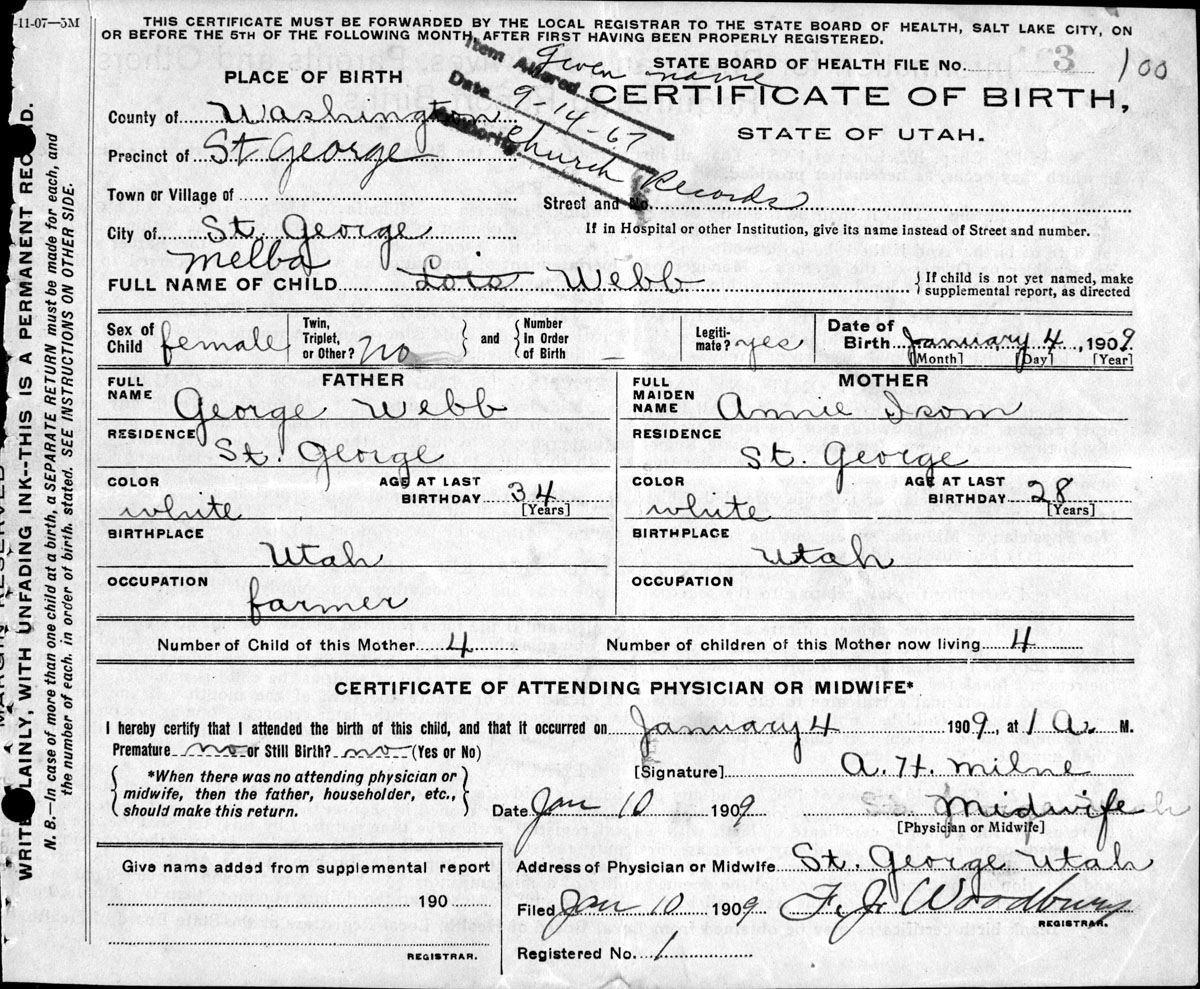 -11-07—5M
THIS CERTIFICATE MUST BE FORWARDED BY THE LOCAL REGISTRAR TO THE STATE BOARD OF HEALTH, SALT LAKE CITY, ON
OR BEFORE THE 5TH OF THE FOLLOWING MONTH, AFTER FIRST HAVING BEEN PROPERLY REGISTERED.
Item Altered Given name
Date 9-14-67
Authority Church Records
STATE BOARD OF HEALTH FILE No. 163 100
PLACE OF BIRTH
CERTIFICATE OF BIRTH,
STATE OF UTAH.
County of Washington
Precinct of St George
Town or Village of
Street and No.
City of St. George
If in Hospital or other Institution, give its name instead of Street and number.
Melba
FULL NAME OF CHILD Lois Webb
{If child is not yet named, make
supplemental report, as directed
Sex of Child female
Twin, Triplet, or Other? No
and
Number In Order of Birth –
Legiti-mate? yes
Date of Birth January 4, 1909
[Month] [Day] [Year]
FATHER
FULL NAME George Webb
RESIDENCE
St. George
COLOR white
AGE AT LAST BIRTHDAY 34
[Years]
BIRTHPLACE
Utah
OCCUPATION
farmer
MOTHER
FULL MAIDEN NAME Annie Isom
RESIDENCE
St. George
COLOR white
AGE AT LAST BIRTHDAY 28
[Years]
BIRTHPLACE
Utah
OCCUPATION
Number of Child of this Mother 4
Number of children of this Mother now living 4
CERTIFICATE OF ATTENDING PHYSICIAN OR MIDWIFE*
I hereby certify that I attended the birth of this child, and that it occurred on January 4 1909, at 1 a. M.
Premature no or Still Birth? no (Yes or No)
[Signature] A. H. Milne
{*When there was no attending physician or
midwife, then the father, householder, etc.,
should make this return.}
Date Jan 10 1909
Midwife
[Physician or Midwife]
Give name added from supplemental report
190
REGISTRAR.
Address of Physician or Midwife St. George Utah
Filed Jan 10 1909 F. J. Woodbury
REGISTRAR.
Registered No. 1
MARGIN RESERVED
WRITE PLAINLY, WITH UNFADING INK--THIS IS A PERMANENT RECORD.
N. B.—In case of more than one child at a birth, a SEPARATE RETURN must be made for each, and
the number of each, in order of birth, stated. SEE INSTRUCTIONS ON OTHER SIDE.